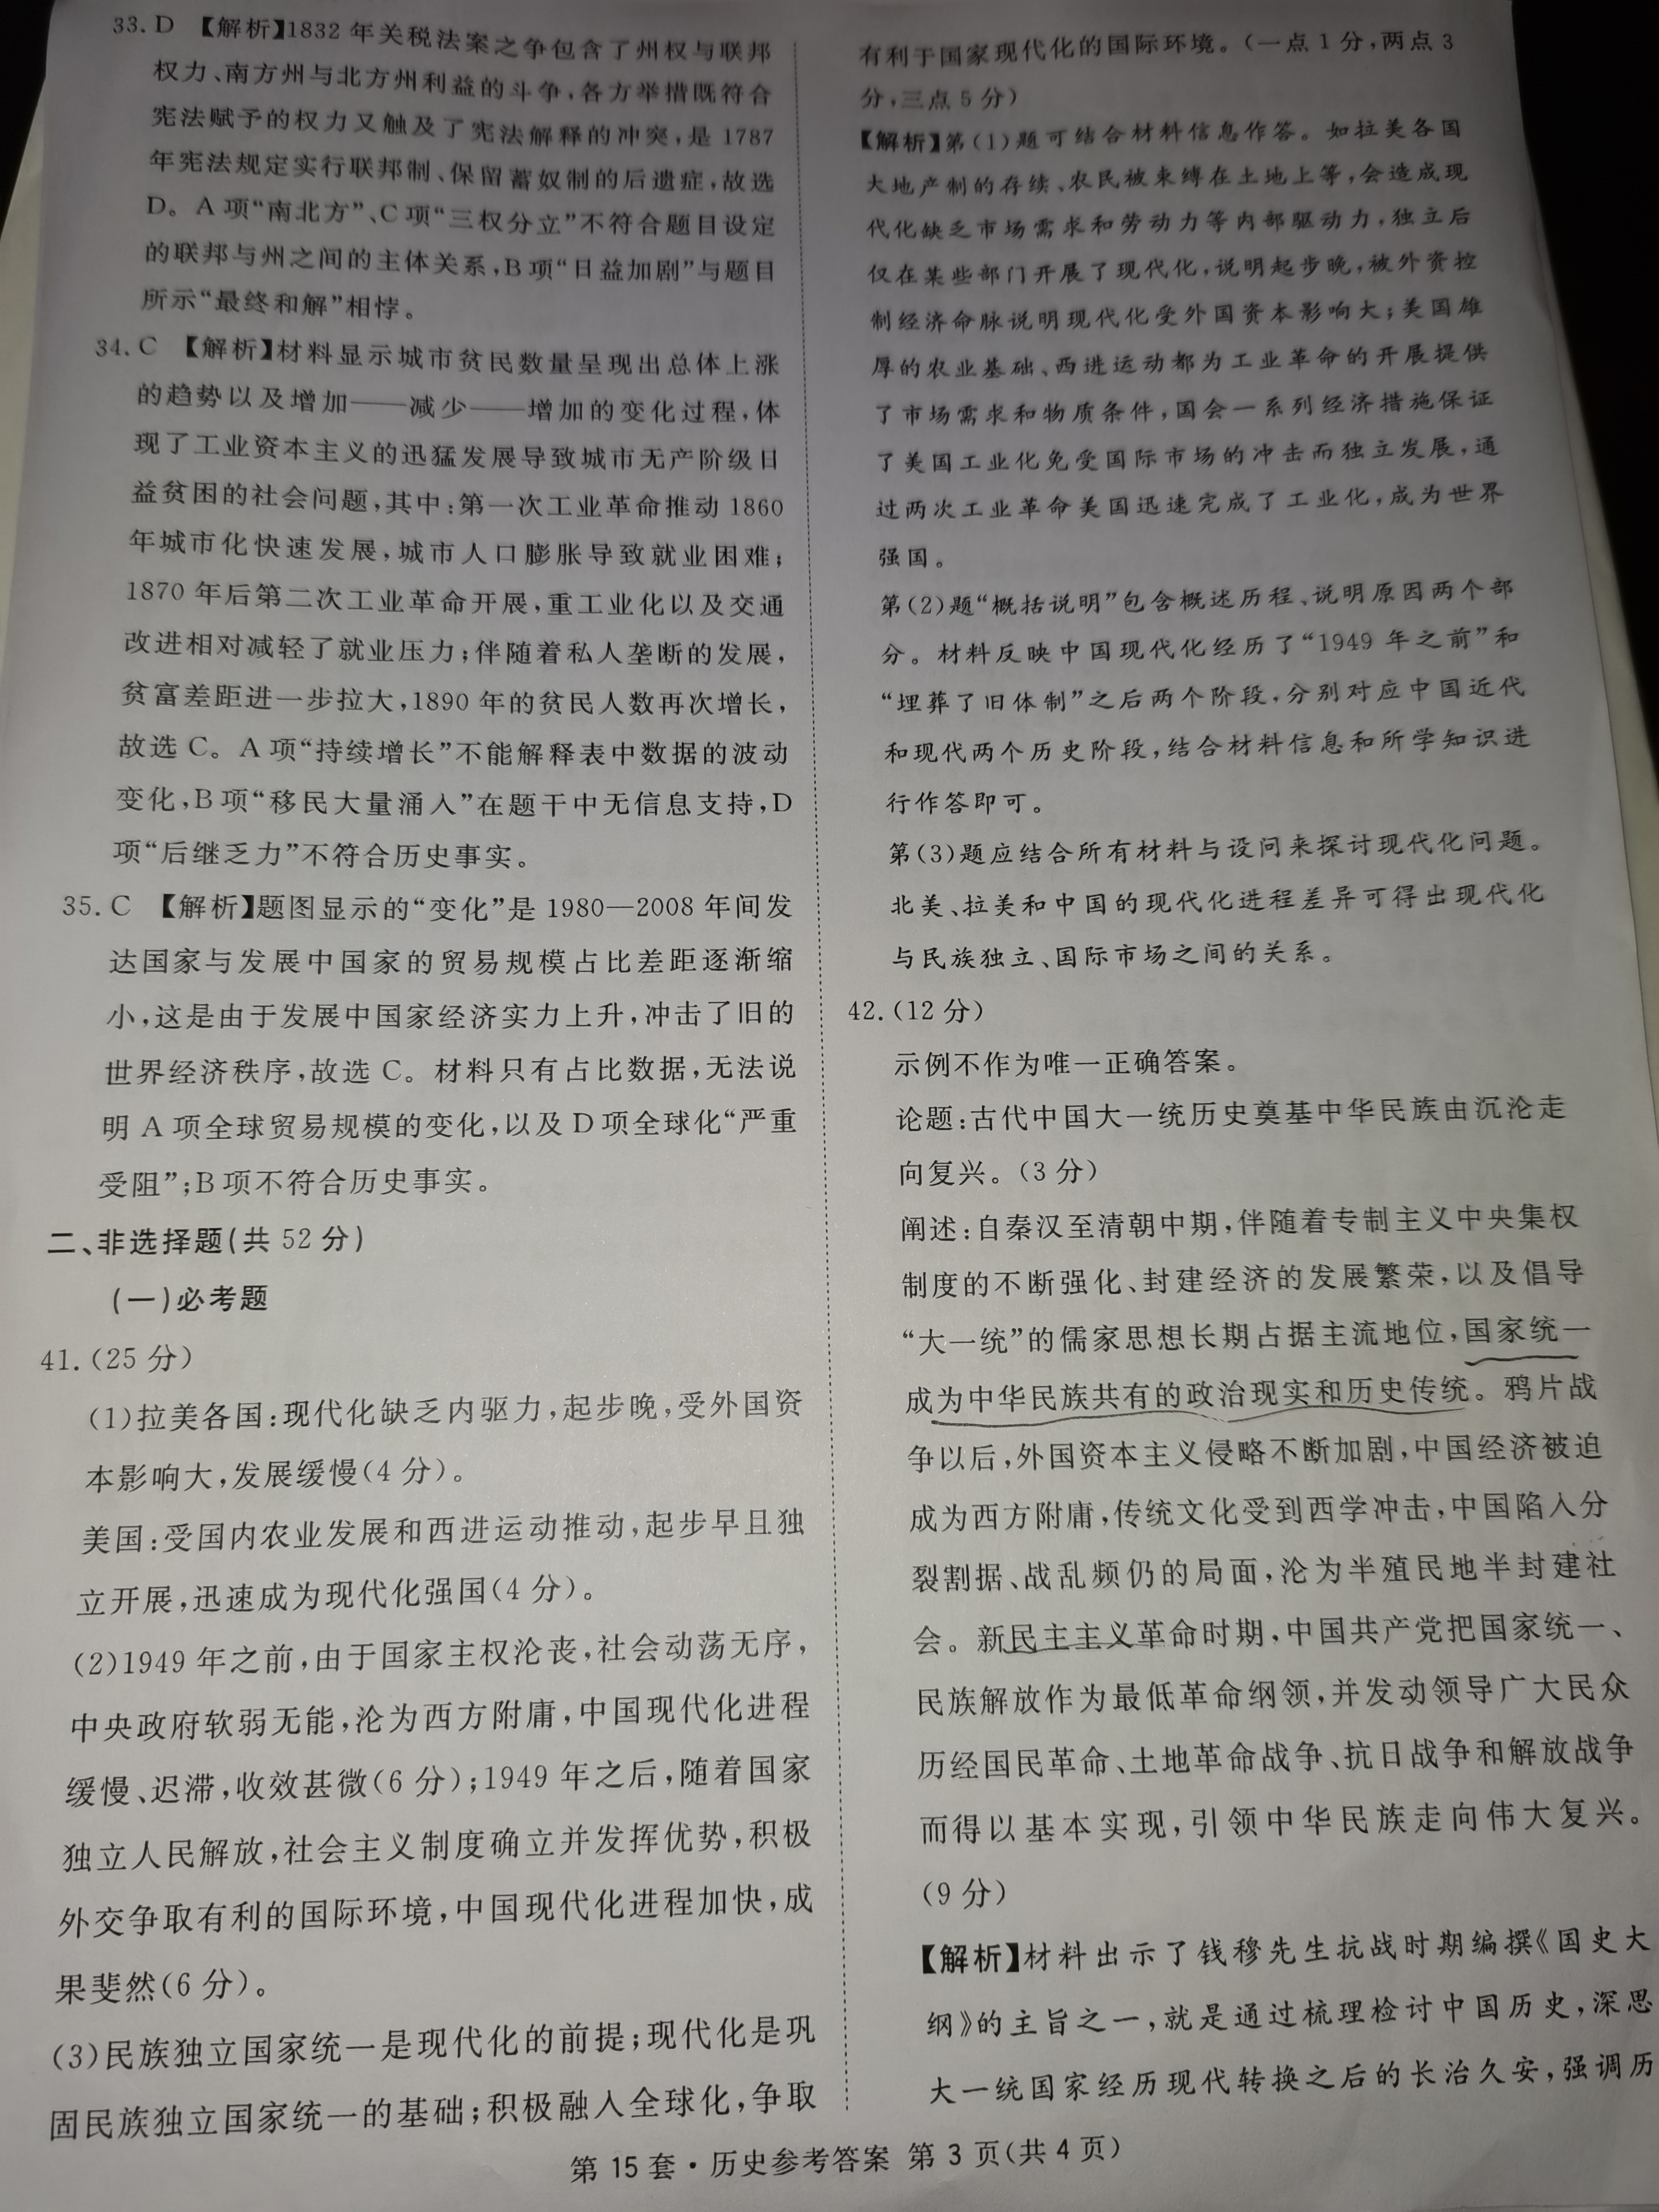 33. D 【解析】1832 年关税法案之争包含了州权与联邦
权力、南方州与北方州利益的斗争,各方举措既符合
宪法赋予的权力又触及了宪法解释的冲突,是 1787
年宪法规定实行联邦制、保留蓄奴制的后遗症,故选
D。A 项“南北方”、C 项“三权分立”不符合题目设定
的联邦与州之间的主体关系,B 项“日益加剧”与题目
所示“最终和解”相悖。
34. C 【解析】材料显示城市贫民数量呈现出总体上涨
的趋势以及增加——减少——增加的变化过程,体
现了工业资本主义的迅猛发展导致城市无产阶级日
益贫困的社会问题,其中:第一次工业革命推动 1860
年城市化快速发展,城市人口膨胀导致就业困难;
1870 年后第二次工业革命开展,重工业化以及交通
改进相对减轻了就业压力;伴随着私人垄断的发展,
贫富差距进一步拉大,1890 年的贫民人数再次增长,
故选 C。A 项“持续增长”不能解释表中数据的波动
变化,B 项“移民大量涌入”在题干中无信息支持,D
项“后继乏力”不符合历史事实。
35. C 【解析】题图显示的“变化”是 1980—2008 年间发
达国家与发展中国家的贸易规模占比差距逐渐缩
小,这是由于发展中国家经济实力上升,冲击了旧的
世界经济秩序,故选 C。材料只有占比数据,无法说
明 A 项全球贸易规模的变化,以及 D 项全球化“严重
受阻”;B 项不符合历史事实。
二、非选择题(共 52 分)
(一)必考题
41.(25 分)
(1)拉美各国:现代化缺乏内驱力,起步晚,受外国资
本影响大,发展缓慢(4 分)。
美国:受国内农业发展和西进运动推动,起步早且独
立开展,迅速成为现代化强国(4 分)。
(2)1949 年之前,由于国家主权沦丧,社会动荡无序,
中央政府软弱无能,沦为西方附庸,中国现代化进程
缓慢、迟滞,收效甚微(6 分);1949 年之后,随着国家
独立人民解放,社会主义制度确立并发挥优势,积极
外交争取有利的国际环境,中国现代化进程加快,成
果斐然(6 分)。
(3)民族独立国家统一是现代化的前提;现代化是巩
固民族独立国家统一的基础;积极融入全球化,争取
有利于国家现代化的国际环境。(一点 1 分,两点 3
分,三点 5 分)
【解析】第(1)题可结合材料信息作答。如拉美各国
大地产制的存续、农民被束缚在土地上等,会造成现
代化缺乏市场需求和劳动力等内部驱动力,独立后
仅在某些部门开展了现代化,说明起步晚,被外资控
制经济命脉说明现代化受外国资本影响大;美国雄
厚的农业基础、西进运动都为工业革命的开展提供
了市场需求和物质条件,国会一系列经济措施保证
了美国工业化免受国际市场的冲击而独立发展,通
过两次工业革命美国迅速完成了工业化,成为世界
强国。
第(2)题“概括说明”包含概述历程、说明原因两个部
分。材料反映中国现代化经历了“1949 年之前”和
“埋葬了旧体制”之后两个阶段,分别对应中国近代
和现代两个历史阶段,结合材料信息和所学知识进
行作答即可。
第(3)题应结合所有材料与设问来探讨现代化问题。
北美、拉美和中国的现代化进程差异可得出现代化
与民族独立、国际市场之间的关系。
42.(12 分)
示例不作为唯一正确答案。
论题:古代中国大一统历史奠基中华民族由沉沦走
向复兴。(3 分)
阐述:自秦汉至清朝中期,伴随着专制主义中央集权
制度的不断强化、封建经济的发展繁荣,以及倡导
“大一统”的儒家思想长期占据主流地位,国家统一
成为中华民族共有的政治现实和历史传统。鸦片战
争以后,外国资本主义侵略不断加剧,中国经济被迫
成为西方附庸,传统文化受到西学冲击,中国陷入分
裂割据、战乱频仍的局面,沦为半殖民地半封建社
会。新民主主义革命时期,中国共产党把国家统一、
民族解放作为最低革命纲领,并发动领导广大民众
历经国民革命、土地革命战争、抗日战争和解放战争
而得以基本实现,引领中华民族走向伟大复兴。
(9 分)
【解析】材料出示了钱穆先生抗战时期编撰《国史大
纲》的主旨之一,就是通过梳理检讨中国历史,深思
大一统国家经历现代转换之后的长治久安,强调历
第 15 套·历史参考答案 第 3 页(共 4 页)